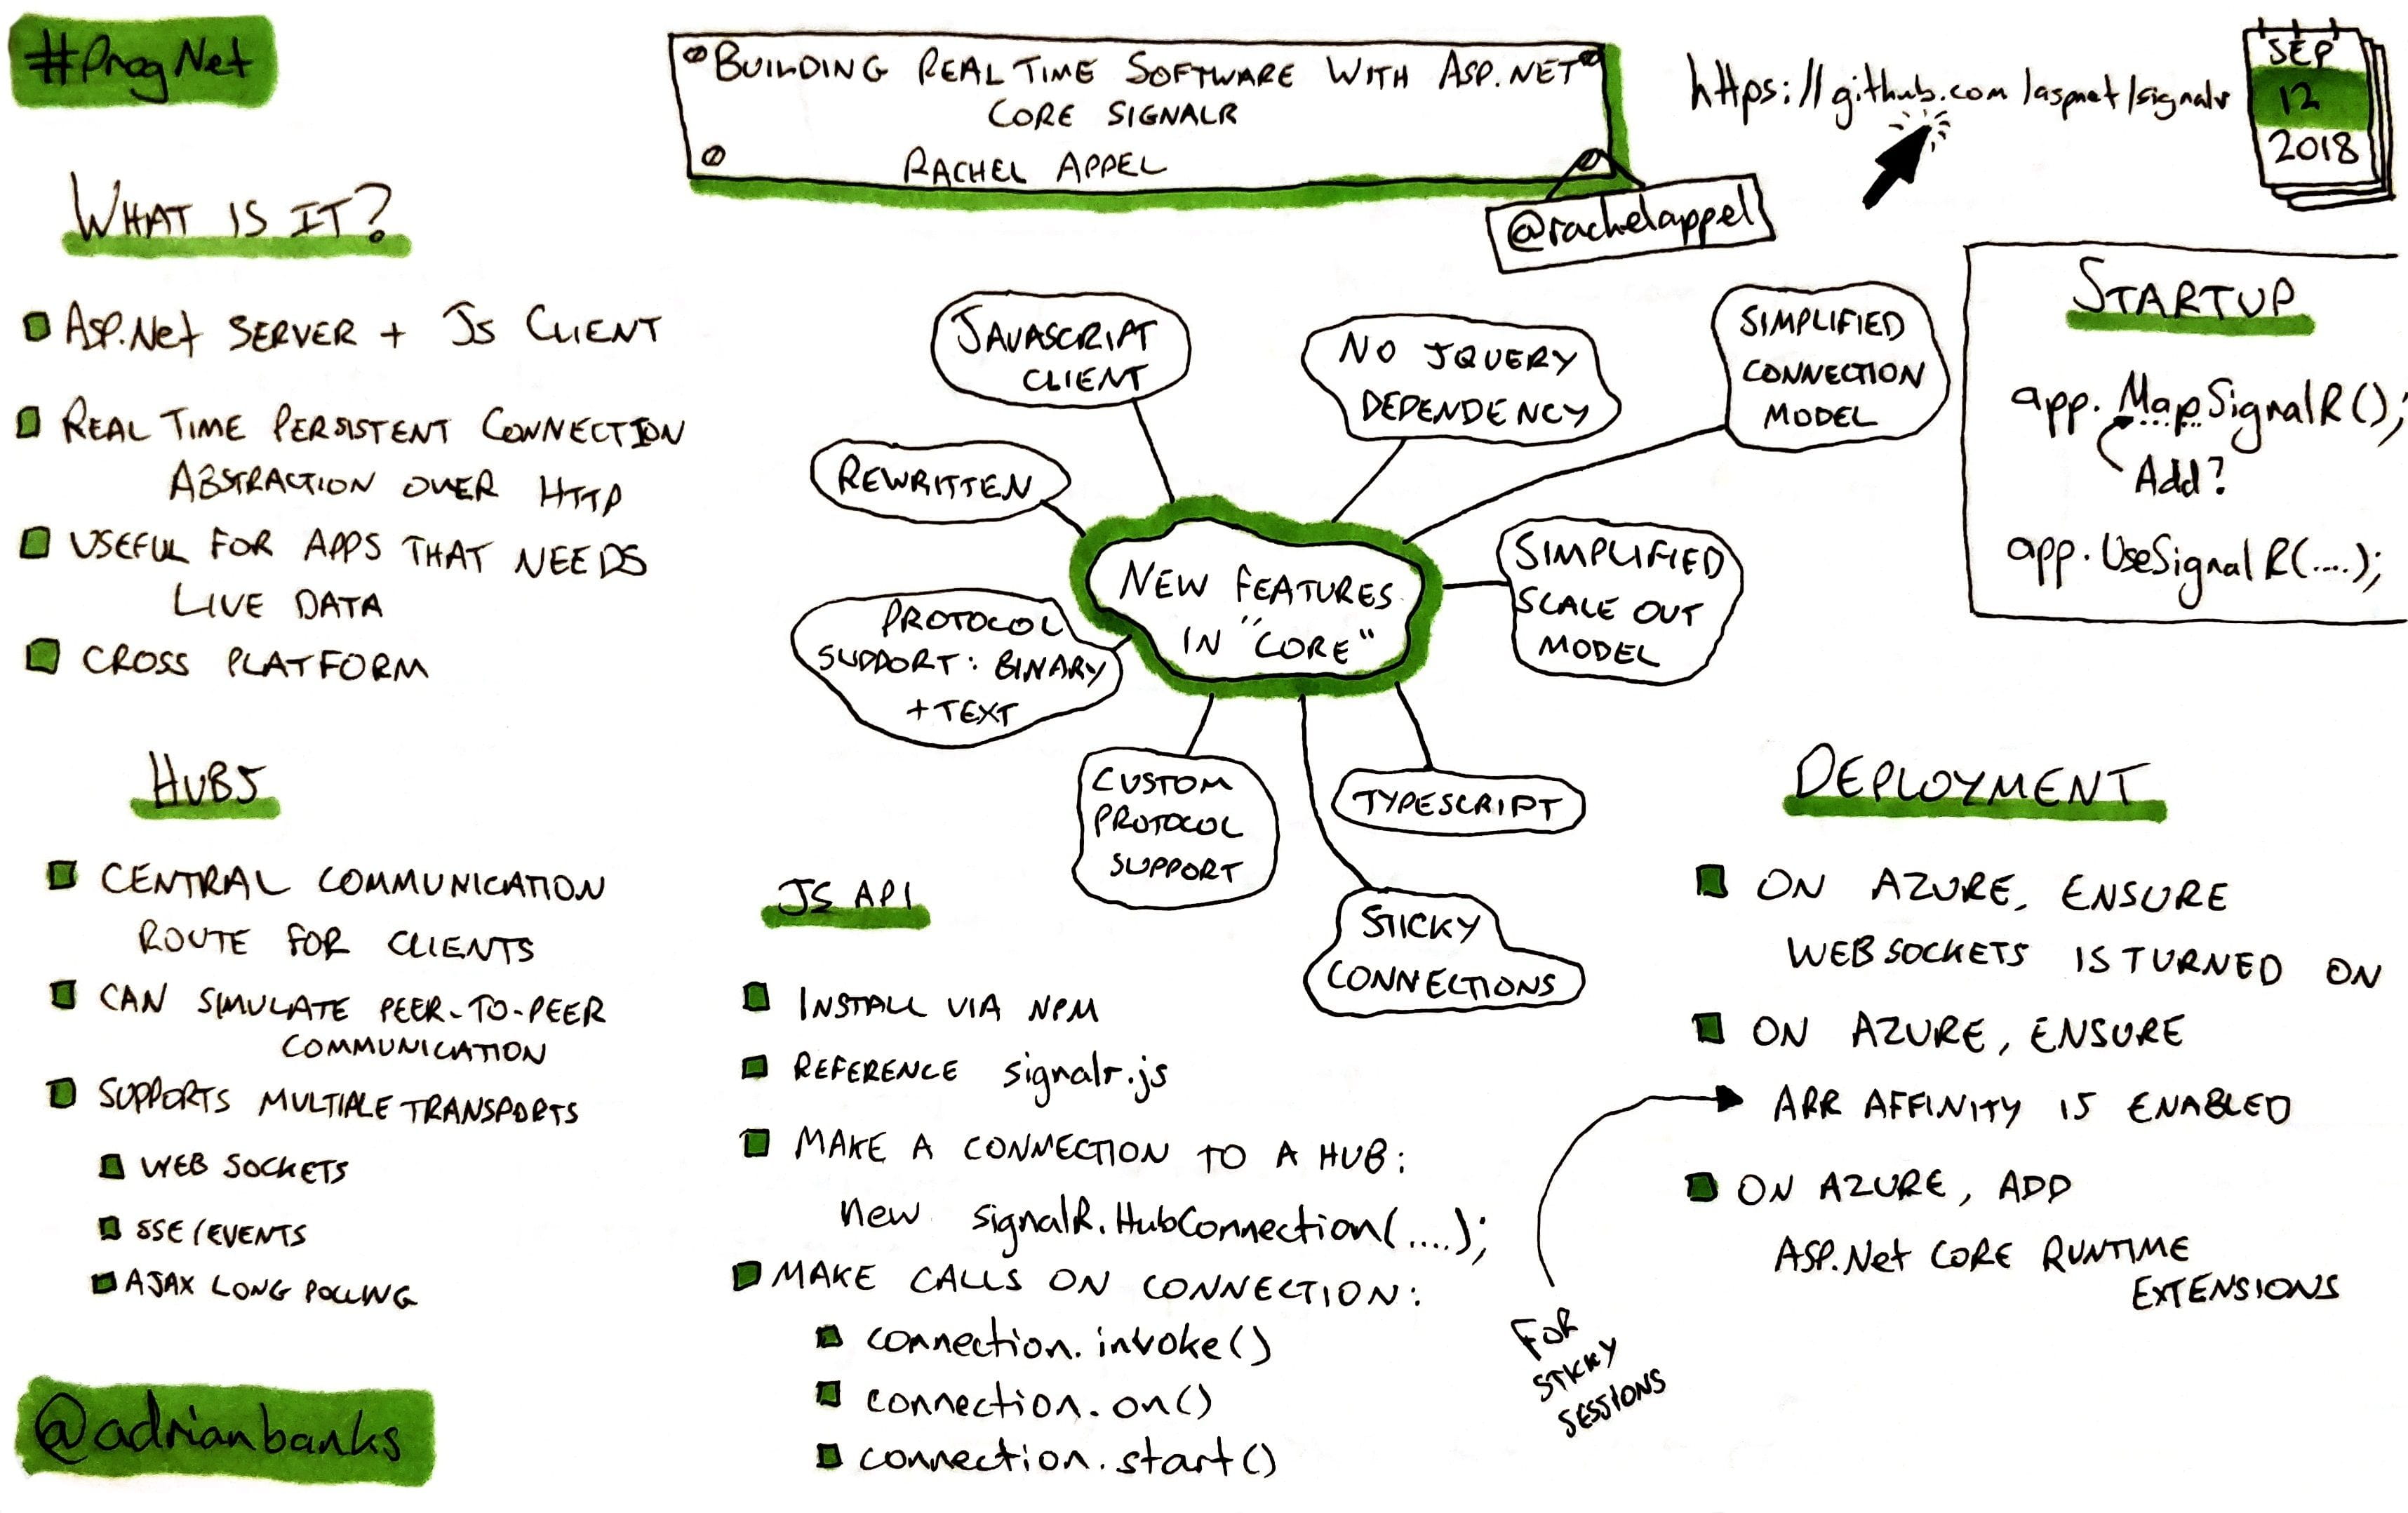 #ProgNet
BUILDING REAL TIME SOFTWARE WITH ASP.NET
CORE SIGNALR
RACHEL APPEL
@rachelappel
https://github.com/aspnet/signalr
SEP
12
2018
WHAT IS IT?
ASP.Net SERVER + JS CLIENT
REAL TIME PERSISTENT CONNECTION
ABSTRACTION OVER HTTP
USEFUL FOR APPS THAT NEEDS
LIVE DATA
CROSS PLATFORM
HUBS
CENTRAL COMMUNICATION
ROUTE FOR CLIENTS
CAN SIMULATE PEER-TO-PEER
COMMUNICATION
SUPPORTS MULTIPLE TRANSPORTS
WEB SOCKETS
SSE/EVENTS
AJAX LONG POLLING
@adrianbanks
NEW FEATURES
IN "CORE"
REWRITTEN
JAVASCRIPT
CLIENT
NO JQUERY
DEPENDENCY
SIMPLIFIED
CONNECTION
MODEL
SIMPLIFIED
SCALE OUT
MODEL
TYPESCRIPT
STICKY
CONNECTIONS
CUSTOM
PROTOCOL
SUPPORT
PROTOCOL
SUPPORT: BINARY
+ TEXT
JS API
INSTALL VIA NPM
REFERENCE signalr.js
MAKE A CONNECTION TO A HUB:
new signalR.HubConnection(....);
MAKE CALLS ON CONNECTION:
connection.invoke()
connection.on()
connection.start()
STARTUP
app.MapSignalR();
Add?
app.UseSignalR(....);
DEPLOYMENT
ON AZURE, ENSURE
WEBSOCKETS IS TURNED ON
ON AZURE, ENSURE
ARR AFFINITY IS ENABLED
ON AZURE, ADD
ASP.Net CORE RUNTIME
EXTENSIONS
FOR
STICKY
SESSIONS